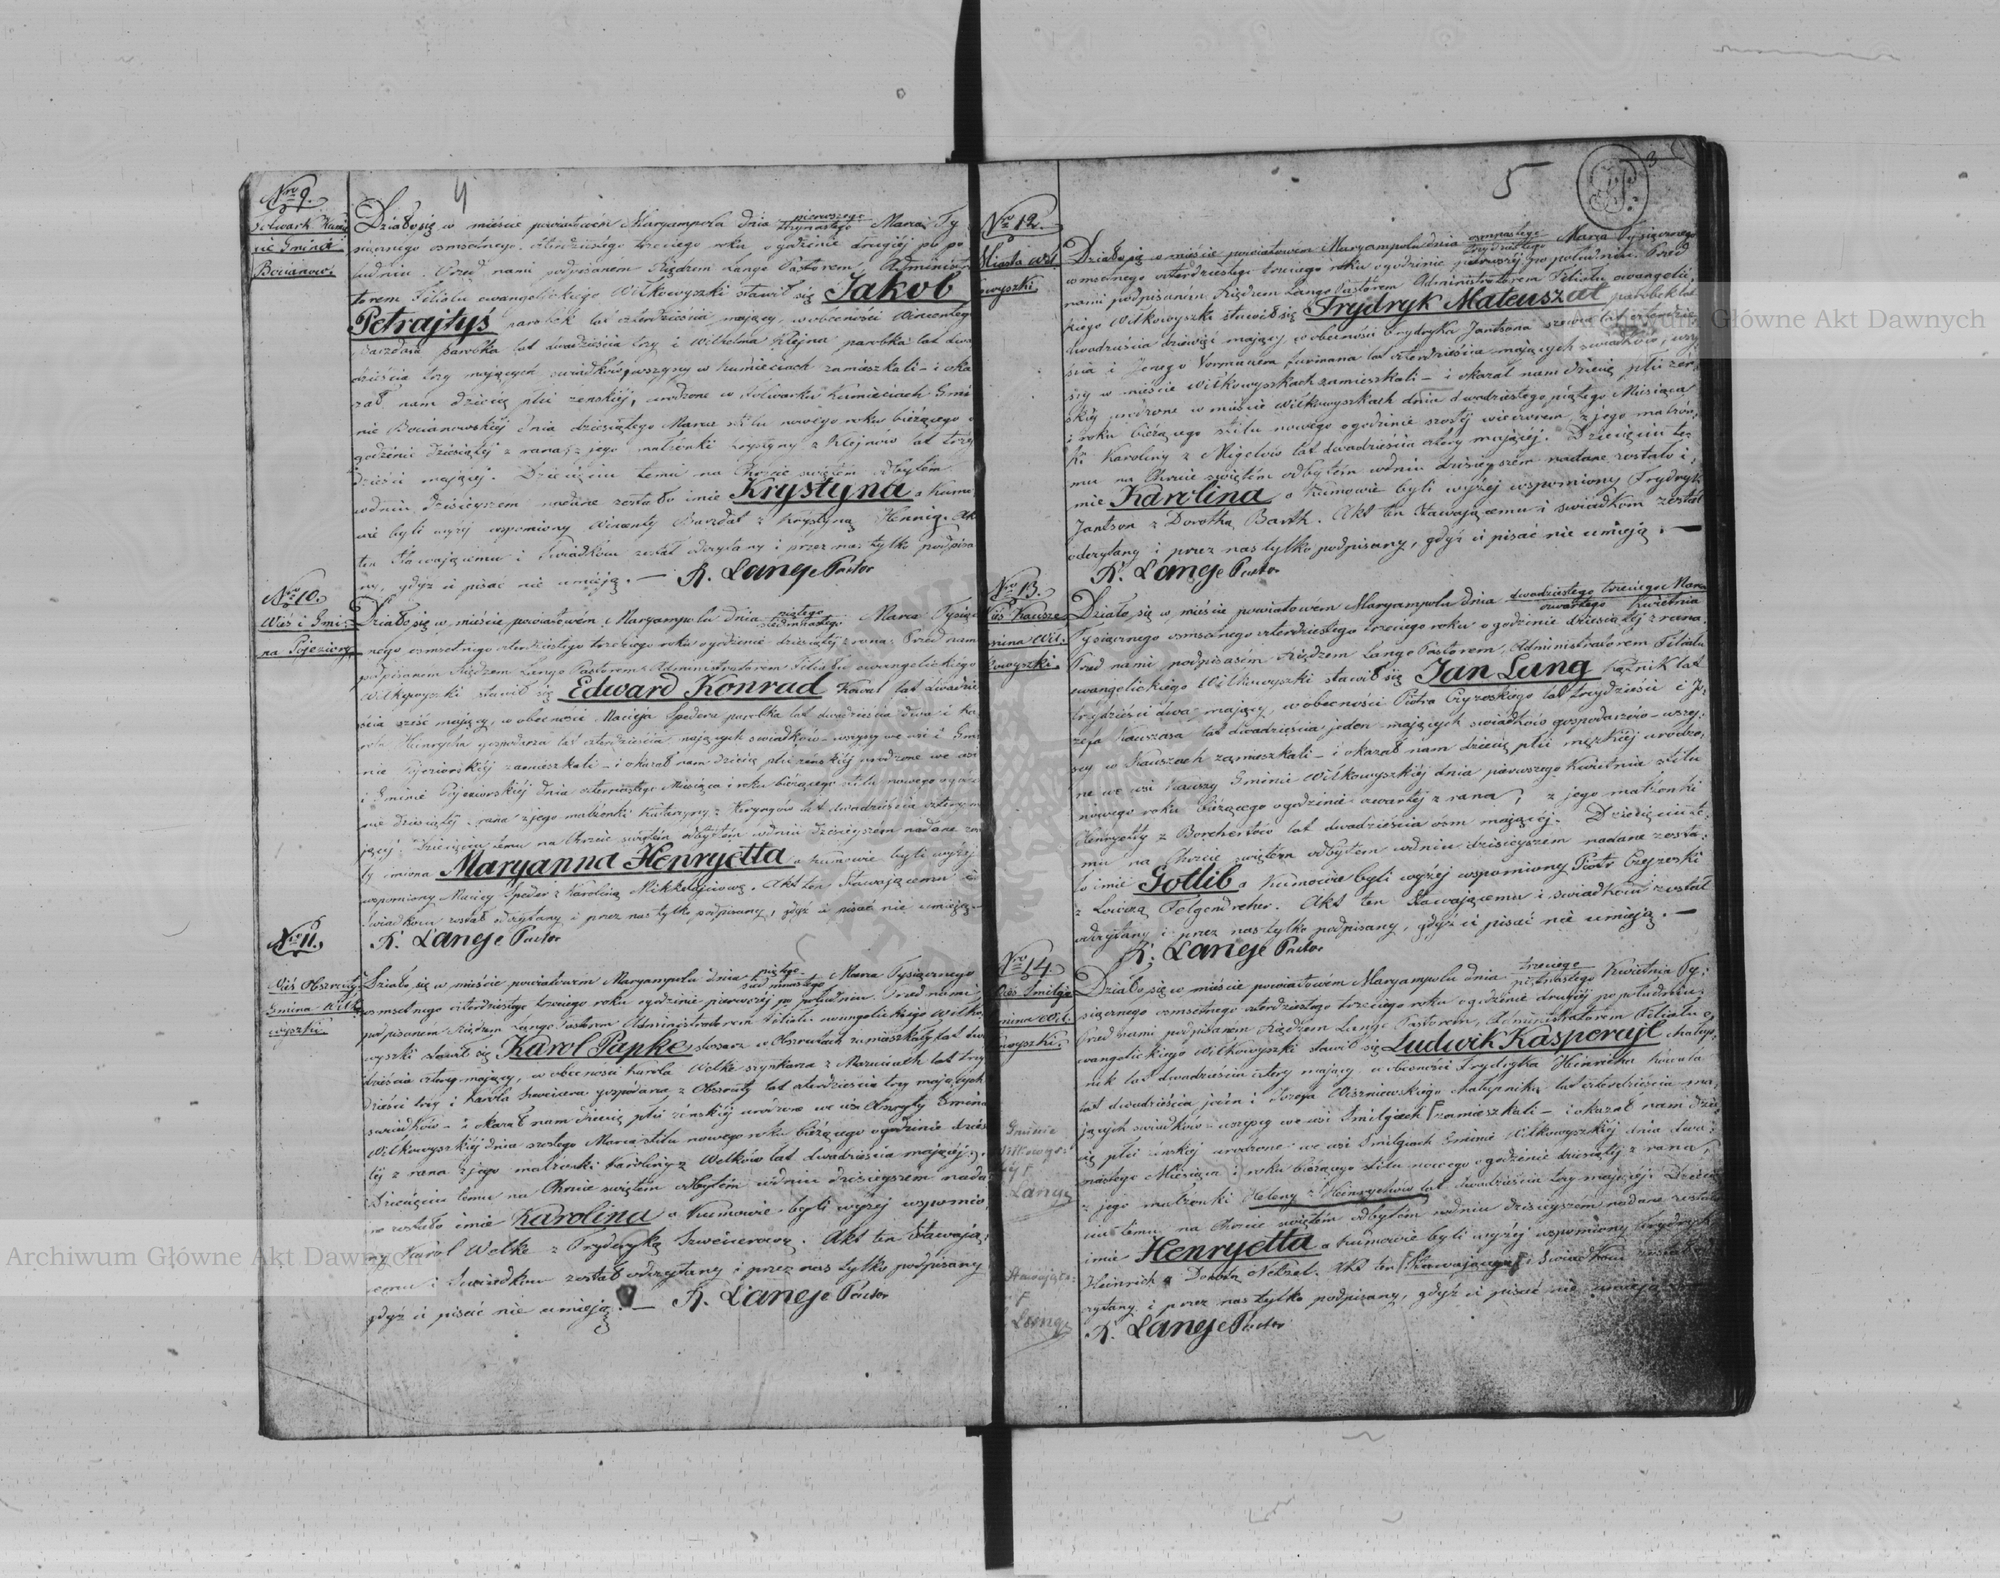 4
Nro 9.
Folwark Kumie
cie Gmina
Bocianow:
Działo się w mieście powiatowém Maryampolu dnia pierwszego/trzynastego Marca Ty
siącznego osmsetnego czterdziestego trzeciego roku o godzinie drugiéj po po
łudniu. Przed nami podpisaném Xiędzem Lange Pastorem, Administra
torem Filiału ewangelickiego Wiłkowyszki stawił się Jakob
Petrajtyś parobek lat czterdzieści mający, w obecności Wincentego
Barzdata parobka lat dwadzieścia trzy i Wilhelma Klejna parobka lat dwa
dzieścia trzy mających świadków wszyscy w Kumieciach zamieszkali – i oka
zał nam dziecię płci żenskiéj, urodzone w Folwarku Kumieciach Gmi
nie Bocianowskiéj dnia dziesiątego Marca stilu nowego roku bieżącego o
godzinie dziesiątéj z rana; z jego małżonki Krystyny z Klejnow lat trzy
dzieści mającéj. Dziecięciu temu na Chrzcie świętém odbytém
w dniu dzisieyszém nadane zostało imie Krystyna a kumo
wie byli wyżéj wspomiony Wincenty Barzdat z Krystyną Hennig. Akt
ten stawaiącemu i świadkom został odczytany i przez nas tylko podpisa
ny, gdyż ci pisać nie umieją. — R. Lange Pastor
Nro 10.
Wieś i Gmi:
na Pojeziory
Działo się w mieście powiatowém Maryampolu dnia piątego/siedmnastego Marca Tysiącz
nego osmsetnego czterdziestego trzeciego roku o godzinie dziesiątéj z rana. Przed nami
podpisanem Xiędzem Lange Pastorem Administratorem Filiału ewangelickiego
Wiłkowyszki stawił się Edward Konrad Kowal lat dwadzie
ścia sześć mający, w obecności Macieja Spedera parobka lat dwadzieścia dwa i Ka
rola Heinrycha gospodarza lat czterdzieści mających swiadków – wszyscy we wsi i Gmi
nie Pojeziorskiéj zamieszkali – i okazał nam dziecię płci żenskiéj urodzone we wsi
i Gminie Pojeziorskiéj dnia czternastego Miesiąca i roku bieżącego stilu nowego o godzi
nie dziesiątéj z rana z jego małżonki Katarzyny z lat dwadzieścia cztery ma
jącéj. Dziecięciu temu na Chrzcie świętém odbytém w dniu dzisieyszém nadane zosta
ły imiona Maryanna Henryetta a kumowie byli wyżéj
wspomiony Maciey Speder z Karoliną Mikkelejtową. Akt ten stawającemu i
świadkom został odczytany i przez nas tylko podpisany, gdyż ci pisać nie umieją.
R. Lange Pastor
Nro 11.
Wieś Obszruty
Gmina Wiłko
wyszki.
Działo się w mieście powiatowém Maryampolu dnia piątego/siedmnastego Marca Tysiącznego
osmsetnego czterdziestego trzeciego roku o godzinie pierwszéj po południu. Przed nami
podpisanem Xiędzem Lange Pastorem Administratorem Filiału ewangelickiego Wiłko
wyszki stawił się Karol Papke, stolarz w Obszrutach zamieszkały lat dwa
dzieścia cztery mający, w obecności Karola Welke szynkarza z lat trzy
dzieści trzy i Karola Szweicera gospodarza z Obszruty lat czterdzieścia trzy mających
swiadków – i okazał nam dziecię płci żenskiéj urodzone we wsi Obszruty Gminie
Wiłkowyszkiéj dnia szóstego Marca stilu nowego roku bieżącego o godzinie dziesią
téj z rana z jego małżonki Karoliny z Welków lat dwadzieścia mającéj.
Dziecięciu temu na Chrzcie świętém odbytém w dniu dzisieyszem nada
ne zostało imie Karolina a Kumowie byli wyżéj wspomio
ny Karol Welke z Fryderyką Szweicerową. Akt ten stawają
cemu i świadkom został odczytany i przez nas tylko podpisany
gdyż ci pisać nie umieją. — R. Lange Pastor
5
3
Nro 12.
Miasta Wił
kowyszki
Działo się w mieście powiatowém Maryampolu dnia osmnastego/trzydziestego Marca Tysiącznego
osmsetnego czterdziestego trzeciego roku o godzinie pierwszéj po południu. Przed
nami podpisaném Xiędzem Lange Pastorem Administratorem Filiału ewangelic
kiego Wiłkowyszki stawił się Frydryk Mateuszat parobek lat
dwadzieścia dziewięć mający, w obecności Frydryka Jantsona szewca lat
ścia i Vormanera furmana lat czterdzieścia mających swiadków, wszy
scy w mieście Wiłkowyszkach zamieszkali – i okazał nam dziecię płci żeń
skiéj urodzone w mieście Wiłkowyszkach dnia dwudziestego piątego Miesiąca
i roku bieżącego stilu nowego o godzinie szostéj wieczorem z jego małżon
ki Karoliny z Migelów lat dwadzieścia cztery mającéj. Dziecięciu te
mu na Chrzcie świętém odbytém w dniu dzisieyszém nadane zostało i
mie Karolina a Kumowie byli wyżéj wspomiony Frydryk
Jantson z Dorothą Barth. Akt ten stawającemu i swiadkom został
odczytany i przez nas tylko podpisany, gdyż ci pisać nie umieją. —
R. Lange Pastor
Nro 13.
Wieś Kausze
Gmina Wił
kowyszki
Działo się w mieście powiatowém Maryampolu dnia dwudziestego trzeciego Marca/czwartego Kwietnia
Tysiącznego osmsetnego czterdziestego trzeciego roku o godzinie dziesiątéj z rana.
Przed nami podpisaném Xiędzem Lange Pastorem, Administratorem Filiału
ewangelickiego Wiłkowyszki stawił się Jan Lung lat
trzydzieści dwa mający, w obecności Piotra Czyzeskiego lat trzydzieści i Jó
zefa Kauszasa lat dwadzieścia jeden mających swiadków gospodarzow – wszy
scy w Kauszach zamieszkali – i okazał nam dziecię płci męzkiéj urodzo
ne we wsi Kauszy Gminie Wiłkowyszkiéj dnia pierwszego Kwietnia stilu
nowego roku bieżącego o godzinie czwartéj z rana; z jego małżonki
Henryetty z Borchertów lat dwadzieścia ośm mającéj. Dziecięciu te
mu na Chrzcie świętém odbytém w dniu dzisieyszem nadane zosta
ło imie Gotlib a Kumowie byli wyżéj wspomiony Piotr Czyzeski
z Lowizą Felgendreher. Akt ten stawającemu i swiadkom został
odczytany i przez nas tylko podpisany, gdyż ci pisać nie umieją. —
R. Lange Pastor
Nro 14.
Wieś Smilgie
Gmina Wił
kowyszki.
Działo się w mieście powiatowém Maryampolu dnia trzeciego/piętnastego Kwietnia Ty
siącznego osmsetnego czterdziestego trzeciego roku o godzinie drugiéj po południu.
Przed nami podpisaném Xiędzem Lange Pastorem, Administratorem Filiału e
wangelickiego Wiłkowyszki stawił się Ludwik Kasperajt chałup
nik lat dwadzieścia cztery mający w obecności Frydryka Heinricha kowala
lat dwadzieścia jeden i Jozefa Wiszniewskiego chałupnika lat czterdzieścia ma
jących swiadków – wszyscy we wsi Smilgiach zamieszkali – i okazał nam dzie
cię płci żenskiéj urodzone we wsi Smilgiach Gminie Wiłkowyszkiéj dnia dwu
nastego Miesiąca i roku bieżącego stilu nowego o godzinie dziesiątéj z rana,
z jego małżonki Heleny z Heinrychów lat dwadzieścia trzy mającéj. Dziecię
ciu temu na Chrzcie świętém odbytém w dniu dzisieyszém nadane zostało
imie Henryetta a kumowie byli wyżéj wspomiony Frydryk
Heinrich z Dorotą Netzel. Akt ten stawającemu i swiadkom został od
czytany i przez nas tylko podpisany, gdyż ci pisać nie umieją. —
R. Lange Pastor
Gminie
Wiłkowys:
kiéj
Lange
Stawające:
Lange
Archiwum Główne Akt Dawnych
Archiwum Główne Akt Dawnych